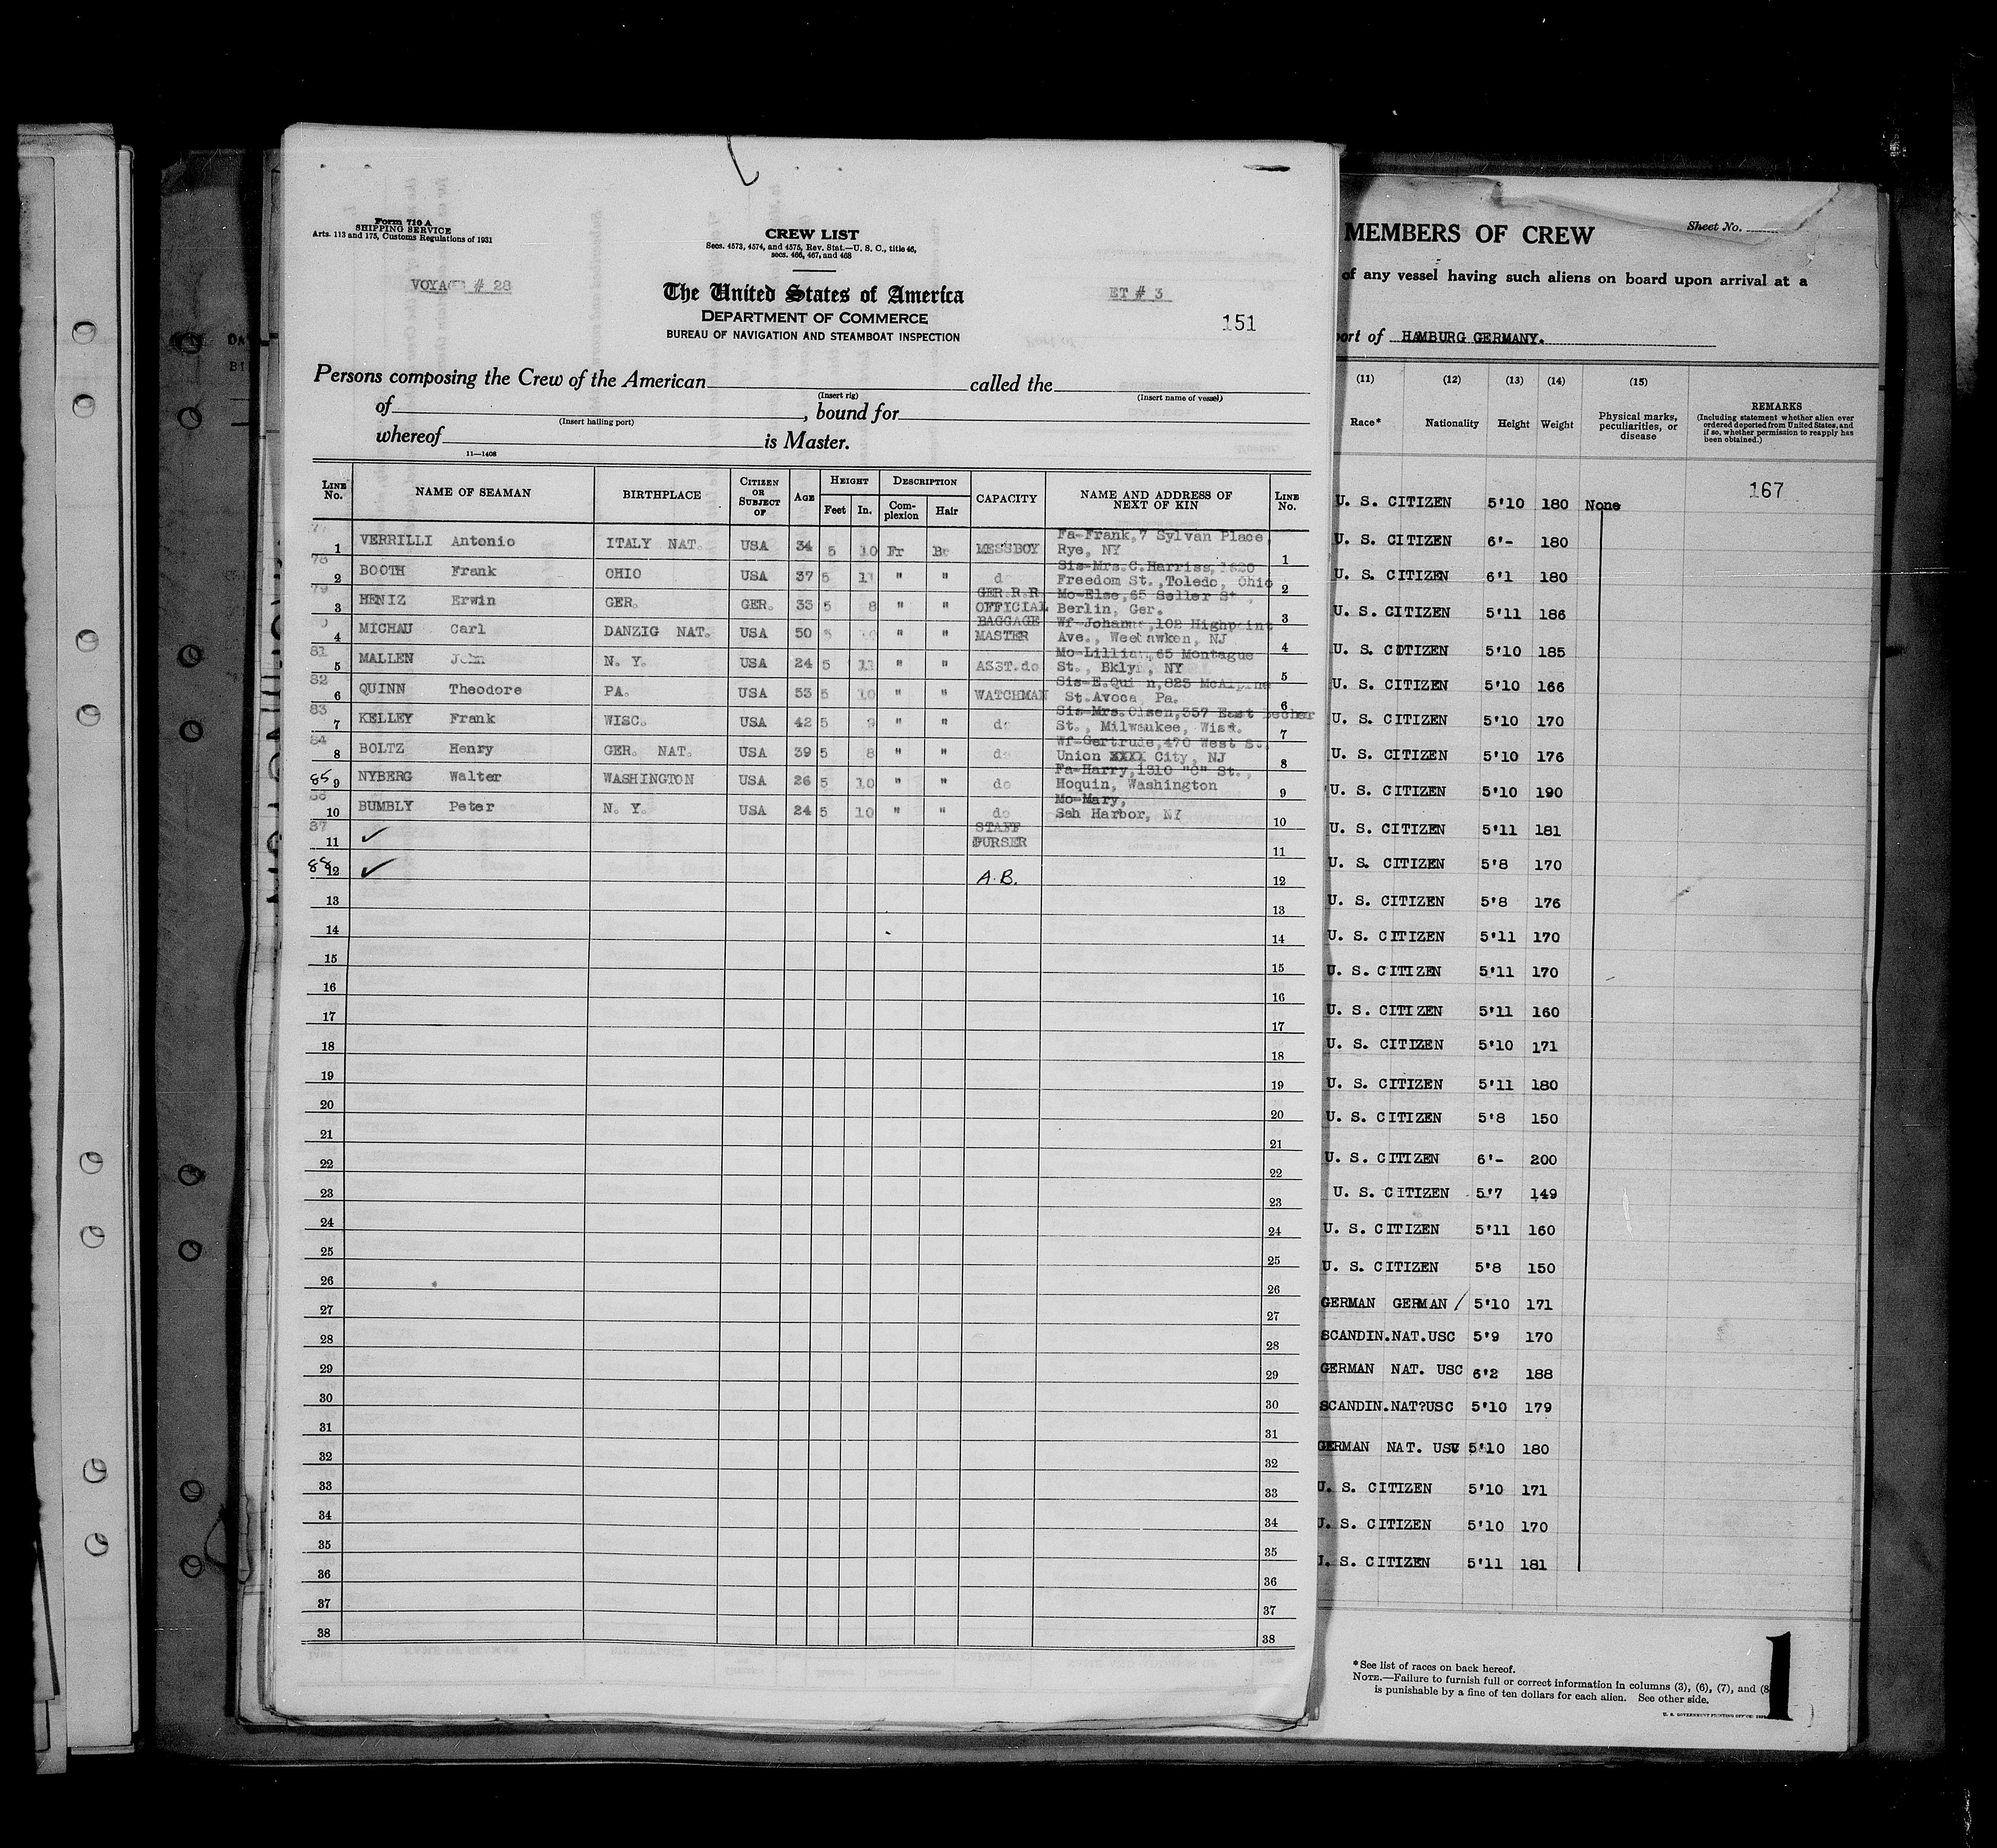 Form 710 A
SHIPPING SERVICE
Arts. 113 and 175, Customs Regulations of 1931
CREW LIST
Secs. 4573, 4574, and 4575, Rev. Stat.—U. S. C., title 46,
secs. 466, 467, and 468
VOYAGE # 28
The United States of America
ET # 3
DEPARTMENT OF COMMERCE
151
BUREAU OF NAVIGATION AND STEAMBOAT INSPECTION
Persons composing the Crew of the American called the
(Insert rig) (Insert name of vessel)
of , bound for
(Insert hailing port)
whereof is Master.
11—1408
LINE No. NAME OF SEAMAN BIRTHPLACE CITIZEN OR SUBJECT OF AGE HEIGHT Feet In. DESCRIPTION Complexion Hair CAPACITY NAME AND ADDRESS OF NEXT OF KIN LINE No.
77 1 VERRILLI Antonio ITALY NAT. USA 34 5 10 Fr Br MESSBOY Fa-Frank,7 Sylvan Place, Rye, NY 1
78 2 BOOTH Frank OHIO USA 37 5 11 " " d Sis-Mrs.C.Harriss,1620 Freedom St.,Toledo, Ohio 2
79 3 HENIZ Erwin GER. GER. 33 5 8 " " GER.R.R OFFICIAL Mo-Else,65 Seller St , Berlin, Ger. 3
4 MICHAU Carl DANZIG NAT. USA 50 5 10 " " BAGGAGE MASTER Wf-Johanna,102 Highpoint Ave., Weehawken, NJ 4
81 5 MALLEN John N. Y. USA 24 5 11 " " ASST.do Mo-Lillian,65 Montague St., Bklyn, NY 5
82 6 QUINN Theodore PA. USA 53 5 10 " " WATCHMAN Sis-E.Quinn,823 McAlpine St.Avoca, Pa. 6
83 7 KELLEY Frank WISC. USA 42 5 9 " " do Sis-Mrs.Olsen,357 East Becher St., Milwaukee, Wisc. 7
84 8 BOLTZ Henry GER. NAT. USA 39 5 8 " " do Wf-Gertrude,470 West St., Union XXXX City, NJ 8
85 9 NYBERG Walter WASHINGTON USA 26 5 10 " " do Fa-Harry,1310 "C" St., Hoquin, Washington 9
86 10 BUMBLY Peter N. Y. USA 24 5 10 " " do Mo-Mary, Sah Harbor, NY 10
87 11 ✓ STAFF PURSER 11
88 12 ✓ A.B. 12
13 13
14 14
15 15
16 16
17 17
18 18
19 19
20 20
21 21
22 22
23 23
24 24
25 25
26 26
27 27
28 28
29 29
30 30
31 31
32 32
33 33
34 34
35 35
36 36
37 37
38 38
MEMBERS OF CREW
Sheet No.
of any vessel having such aliens on board upon arrival at a
port of HAMBURG GERMANY.
(11) (12) (13) (14) (15)
Race* Nationality Height Weight Physical marks, peculiarities, or disease
REMARKS
(Including statement whether alien ever ordered deported from United States, and if so, whether permission to reapply has been obtained.)
167
U. S. CITIZEN 5'10 180 None
U. S. CITIZEN 6'- 180
U. S. CITIZEN 6'1 180
U. S. CITIZEN 5'11 186
U. S. CITIZEN 5'10 185
U. S. CITIZEN 5'10 166
U. S. CITIZEN 5'10 170
U. S. CITIZEN 5'10 176
U. S. CITIZEN 5'10 190
U. S. CITIZEN 5'11 181
U. S. CITIZEN 5'8 170
U. S. CITIZEN 5'8 176
U. S. CITIZEN 5'11 170
U. S. CITIZEN 5'11 170
U. S. CITIZEN 5'11 160
U. S. CITIZEN 5'10 171
U. S. CITIZEN 5'11 180
U. S. CITIZEN 5'8 150
U. S. CITIZEN 6'- 200
U. S. CITIZEN 5'7 149
U. S. CITIZEN 5'11 160
U. S. CITIZEN 5'8 150
GERMAN GERMAN / 5'10 171
SCANDIN.NAT.USC 5'9 170
GERMAN NAT. USC 6'2 188
SCANDIN.NAT?USC 5'10 179
GERMAN NAT. USC 5'10 180
U. S. CITIZEN 5'10 171
U. S. CITIZEN 5'10 170
U. S. CITIZEN 5'11 181
*See list of races on back hereof.
NOTE.—Failure to furnish full or correct information in columns (3), (6), (7), and (8
is punishable by a fine of ten dollars for each alien. See other side.
U. S. GOVERNMENT PRINTING OFFICE
1